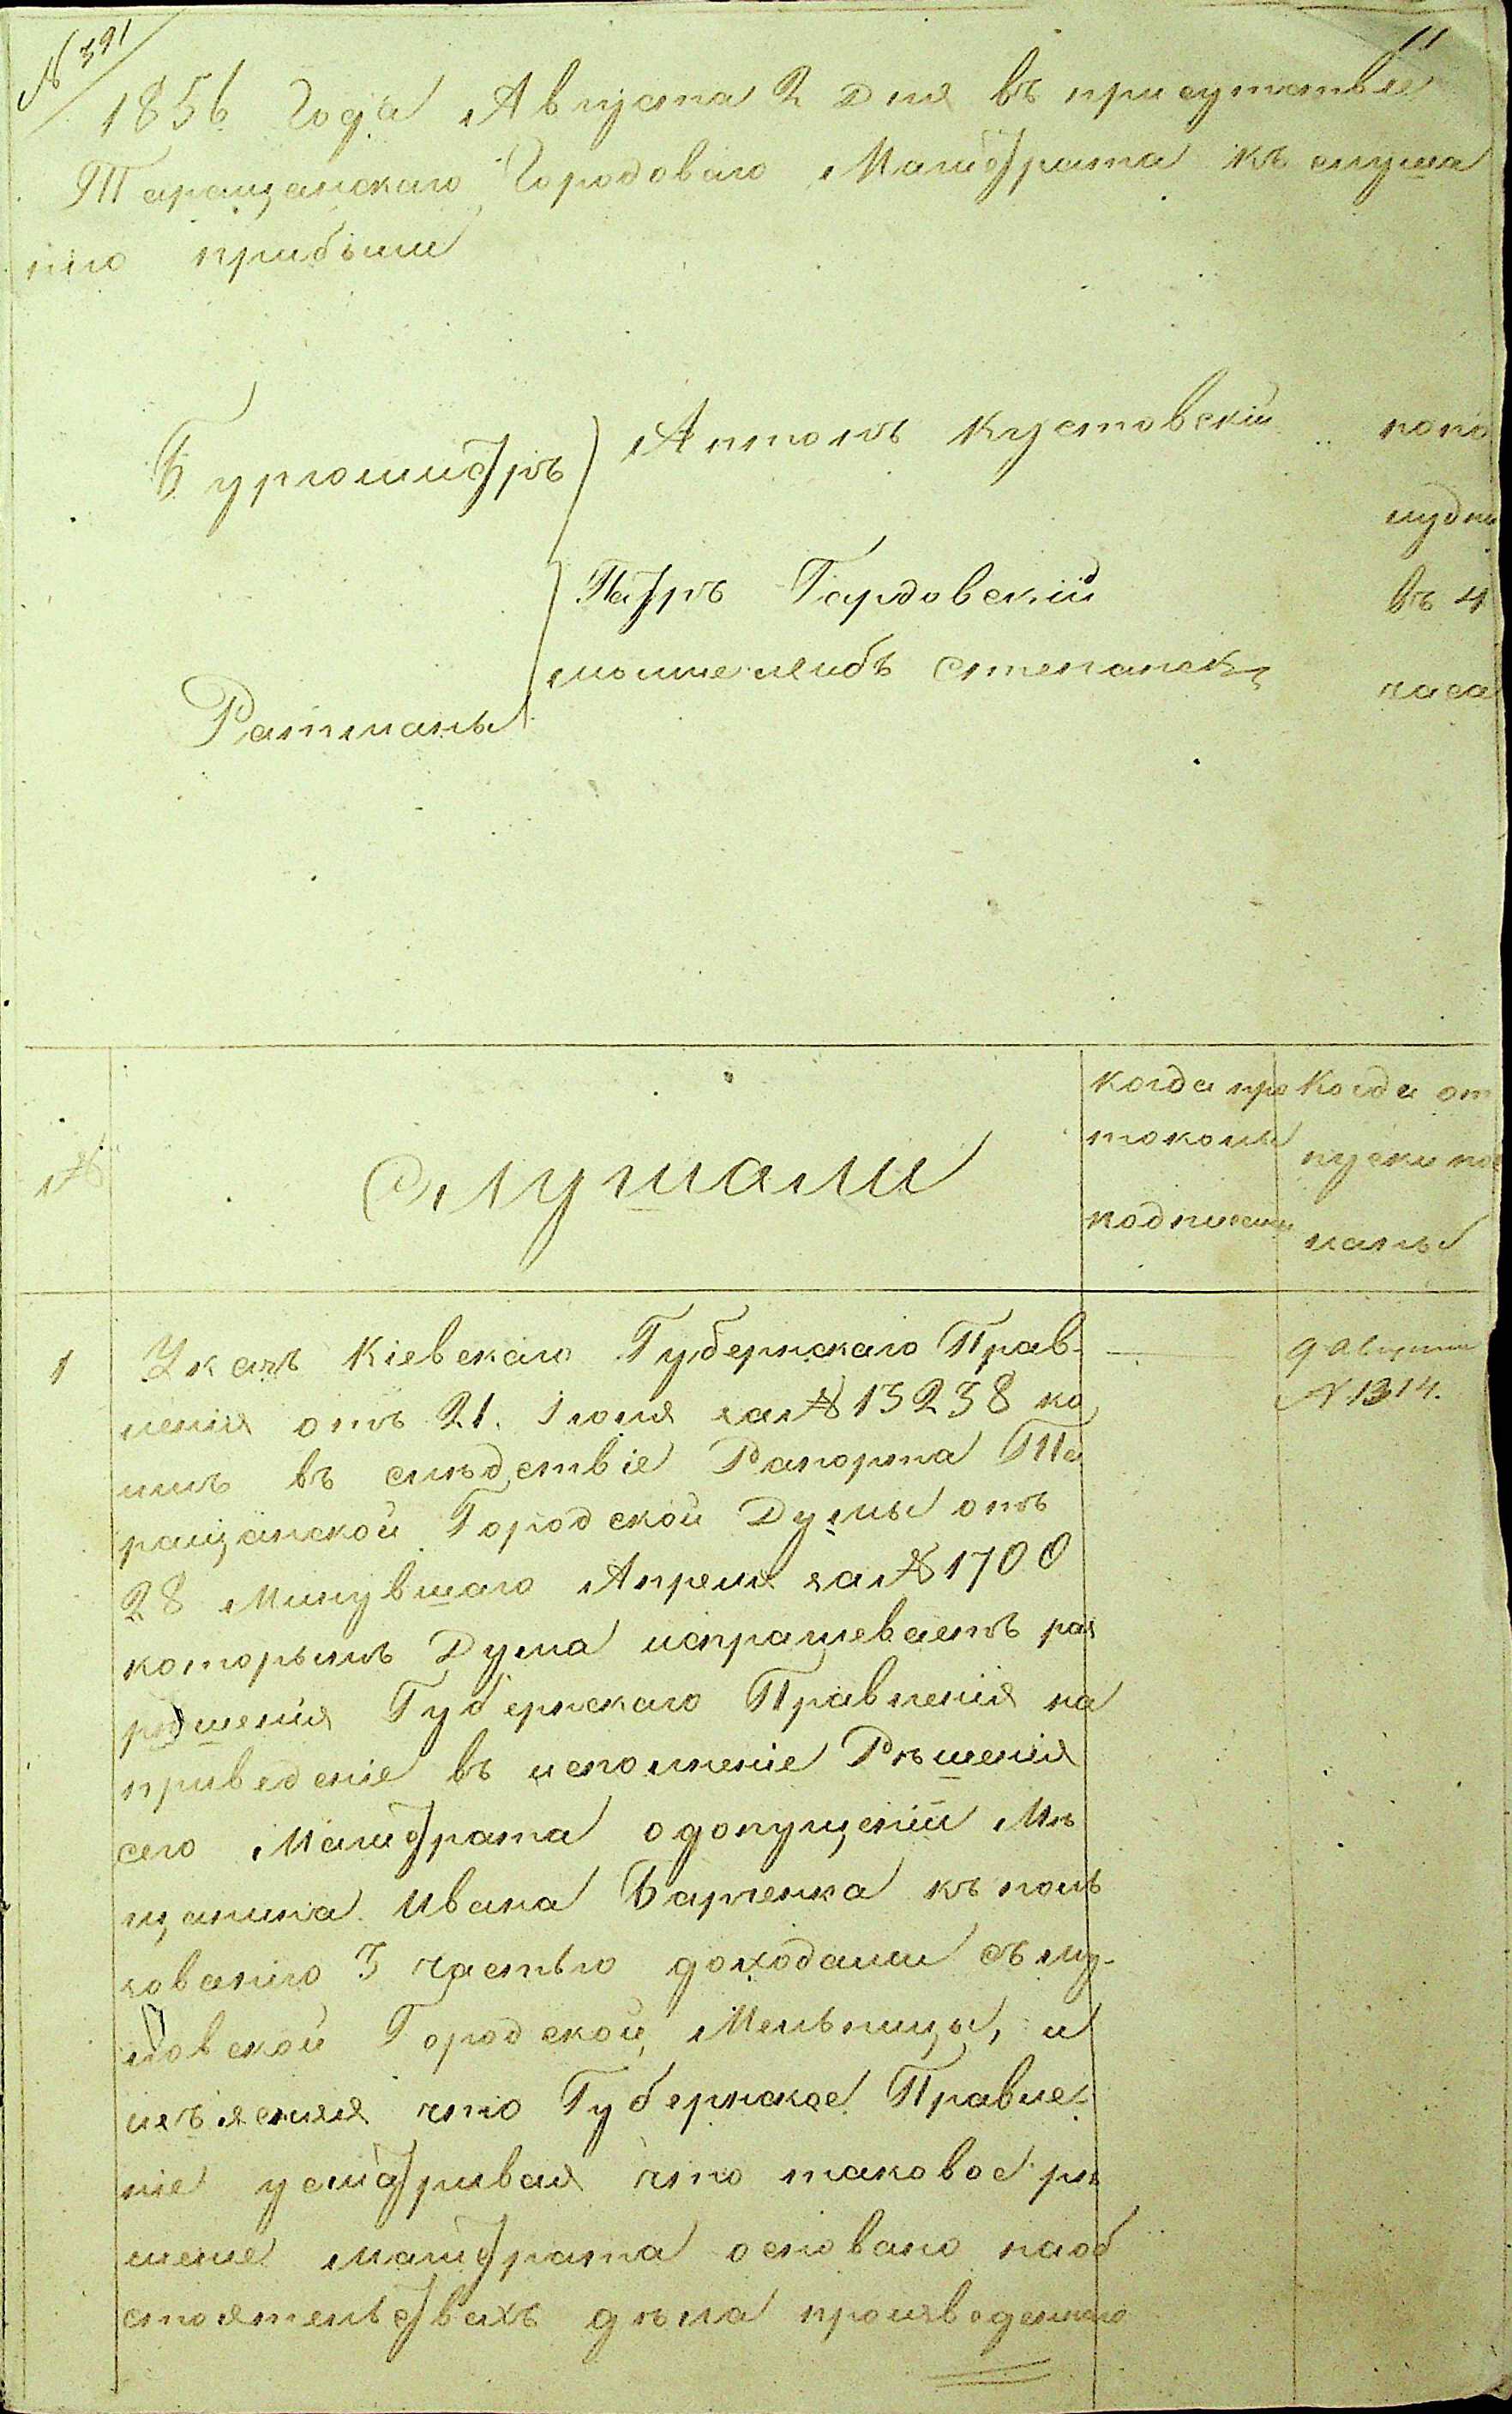 № 391
11
1856 Года Августа 2 дня въ присутствіе
Таращанскаго Городоваго Магистрата къ слуша
нію прибыли
Бургомистръ Антонъ Кустовскій
попо
лудни
въ 4
часа
Петръ Гордовскій
Ратманы
№
Слушали
Когда про
токолы
подписаны
Когда от
пуски пос
ланы
1
Указъ Кіевскаго Губернскаго Прав-
ленія отъ 21. Іюля за № 13238 ко
имъ въ следствіе Рапорта Та
ращанской Городской Думы отъ
28 Минувшаго Апреля за № 1700
которымъ Дума испрашеваетъ раз
решенія Губернскаго Правленія на
приведеніе въ исполненіе Рѣшенія
сего Магистрата о допущеніи Мѣ
щанина Ивана Барченка къ поль
зованію 3 частью доходами съ му-
ловской Городской Мельницы, и
изъясняя что Губернское Правле-
ніе усматривая что таковое рѣ
шеніе магистрата основано наоб
стоятельствахъ дѣла произведеннаго
9 Августа
№ 1314.